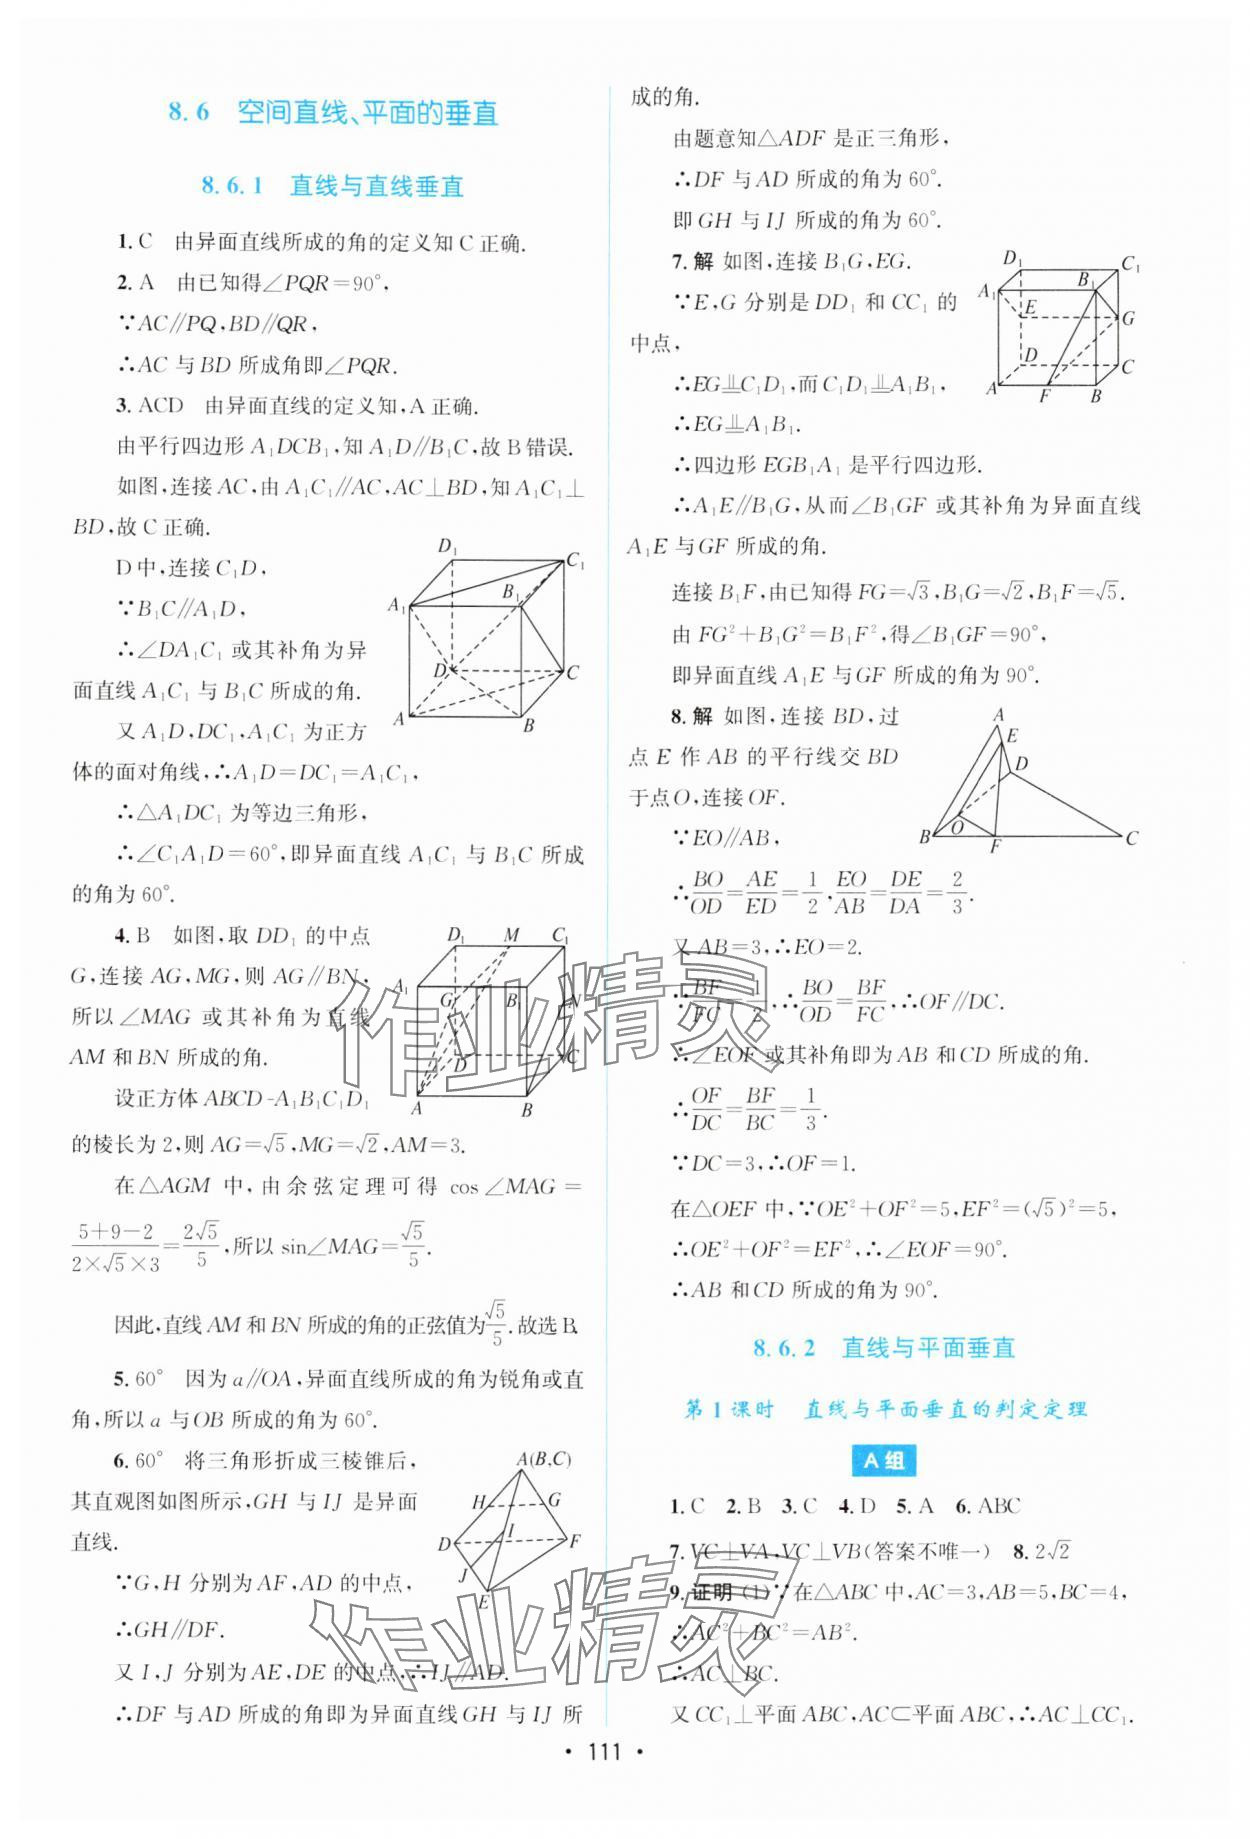 8.6 空间直线、平面的垂直
8.6.1 直线与直线垂直
1. C 由异面直线所成的角的定义知 C 正确.
2. A 由已知得∠PQR=90°,
∵AC∥PQ,BD∥QR,
∴AC 与 BD 所成角即∠PQR.
3. ACD 由异面直线的定义知,A 正确.
由平行四边形 A₁DCB₁,知 A₁D∥B₁C,故 B 错误.
如图,连接 AC,由 A₁C₁∥AC,AC⊥BD,知 A₁C₁⊥
BD,故 C 正确.
D 中,连接 C₁D,
∵B₁C∥A₁D,
∴∠DA₁C₁ 或其补角为异
面直线 A₁C₁ 与 B₁C 所成的角.
又 A₁D,DC₁,A₁C₁ 为正方
体的面对角线,∴A₁D=DC₁=A₁C₁,
∴△A₁DC₁ 为等边三角形,
∴∠C₁A₁D=60°,即异面直线 A₁C₁ 与 B₁C 所成
的角为 60°.
D₁ C₁ A₁ B₁ D C A B
4. B 如图,取 DD₁ 的中点
G,连接 AG,MG,则 AG∥BN,
所以∠MAG 或其补角为直线
AM 和 BN 所成的角.
设正方体 ABCD-A₁B₁C₁D₁
的棱长为 2,则 AG=√5,MG=√2,AM=3.
D₁ M C₁ A₁ G B₁ N D C A B
在△AGM 中,由余弦定理可得 cos∠MAG=
(5+9-2)/(2×√5×3)=2√5/5,所以 sin∠MAG=√5/5.
因此,直线 AM 和 BN 所成的角的正弦值为√5/5.故选 B.
5. 60° 因为 a∥OA,异面直线所成的角为锐角或直
角,所以 a 与 OB 所成的角为 60°.
6. 60° 将三角形折成三棱锥后,
其直观图如图所示,GH 与 IJ 是异面
直线.
∵G,H 分别为 AF,AD 的中点,
∴GH∥DF.
A(B,C) H G I D F J E
又 I,J 分别为 AE,DE 的中点,∴IJ∥AD.
∴DF 与 AD 所成的角即为异面直线 GH 与 IJ 所
成的角.
由题意知△ADF 是正三角形,
∴DF 与 AD 所成的角为 60°.
即 GH 与 IJ 所成的角为 60°.
7. 解 如图,连接 B₁G,EG.
∵E,G 分别是 DD₁ 和 CC₁ 的
中点,
∴EG⫫C₁D₁,而 C₁D₁⫫A₁B₁,
∴EG⫫A₁B₁.
∴四边形 EGB₁A₁ 是平行四边形.
D₁ C₁ A₁ B₁ E G D C A F B
∴A₁E∥B₁G,从而∠B₁GF 或其补角为异面直线
A₁E 与 GF 所成的角.
连接 B₁F,由已知得 FG=√3,B₁G=√2,B₁F=√5.
由 FG²+B₁G²=B₁F²,得∠B₁GF=90°,
即异面直线 A₁E 与 GF 所成的角为 90°.
8. 解 如图,连接 BD,过
点 E 作 AB 的平行线交 BD
于点 O,连接 OF.
∵EO∥AB,
∴BO/OD=AE/ED=1/2,EO/AB=DE/DA=2/3.
A E D B O F C
又 AB=3,∴EO=2.
∵BF/FC=1/2,∴BO/OD=BF/FC,∴OF∥DC.
∴∠EOF 或其补角即为 AB 和 CD 所成的角.
∴OF/DC=BF/BC=1/3.
∵DC=3,∴OF=1.
在△OEF 中,∵OE²+OF²=5,EF²=(√5)²=5,
∴OE²+OF²=EF²,∴∠EOF=90°.
∴AB 和 CD 所成的角为 90°.
8.6.2 直线与平面垂直
第 1 课时 直线与平面垂直的判定定理
A 组
1. C 2. B 3. C 4. D 5. A 6. ABC
7. VC⊥VA,VC⊥VB(答案不唯一) 8. 2√2
9. 证明 (1)∵在△ABC 中,AC=3,AB=5,BC=4,
∴AC²+BC²=AB².
∴AC⊥BC.
又 CC₁⊥平面 ABC,AC⊂平面 ABC,∴AC⊥CC₁.
· 111 ·
作业精灵
作业精灵